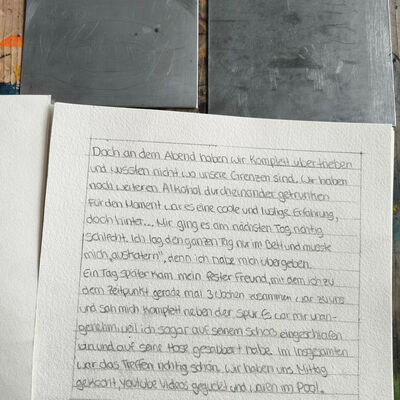 Doch an dem Abend haben wir komplett übertrieben
und wussten nicht wo unsere Grenzen sind. Wir haben
noch weiteren Alkohol durcheinander getrunken
Für den Moment war es eine coole und lustige Erfahrung,
doch hinter... Mir ging es am nächsten Tag richtig
schlecht. Ich lag den ganzen Tag nur im Bett und musste
mich „auskatern", denn ich habe mich übergeben.
Ein Tag später kam mein fester Freund, mit dem ich zu
dem Zeitpunkt gerade mal 3 Wochen zusammen war zu uns
und sah mich komplett neben der Spur. Es war mir unan-
genehm, weil ich sogar auf seinem Schoß eingeschlafen
bin und auf seine Hose gesabbert habe. Im Insgesamten
war das Treffen richtig schön. Wir haben uns Mittag
gekocht, Youtube Videos geguckt und waren im Pool.